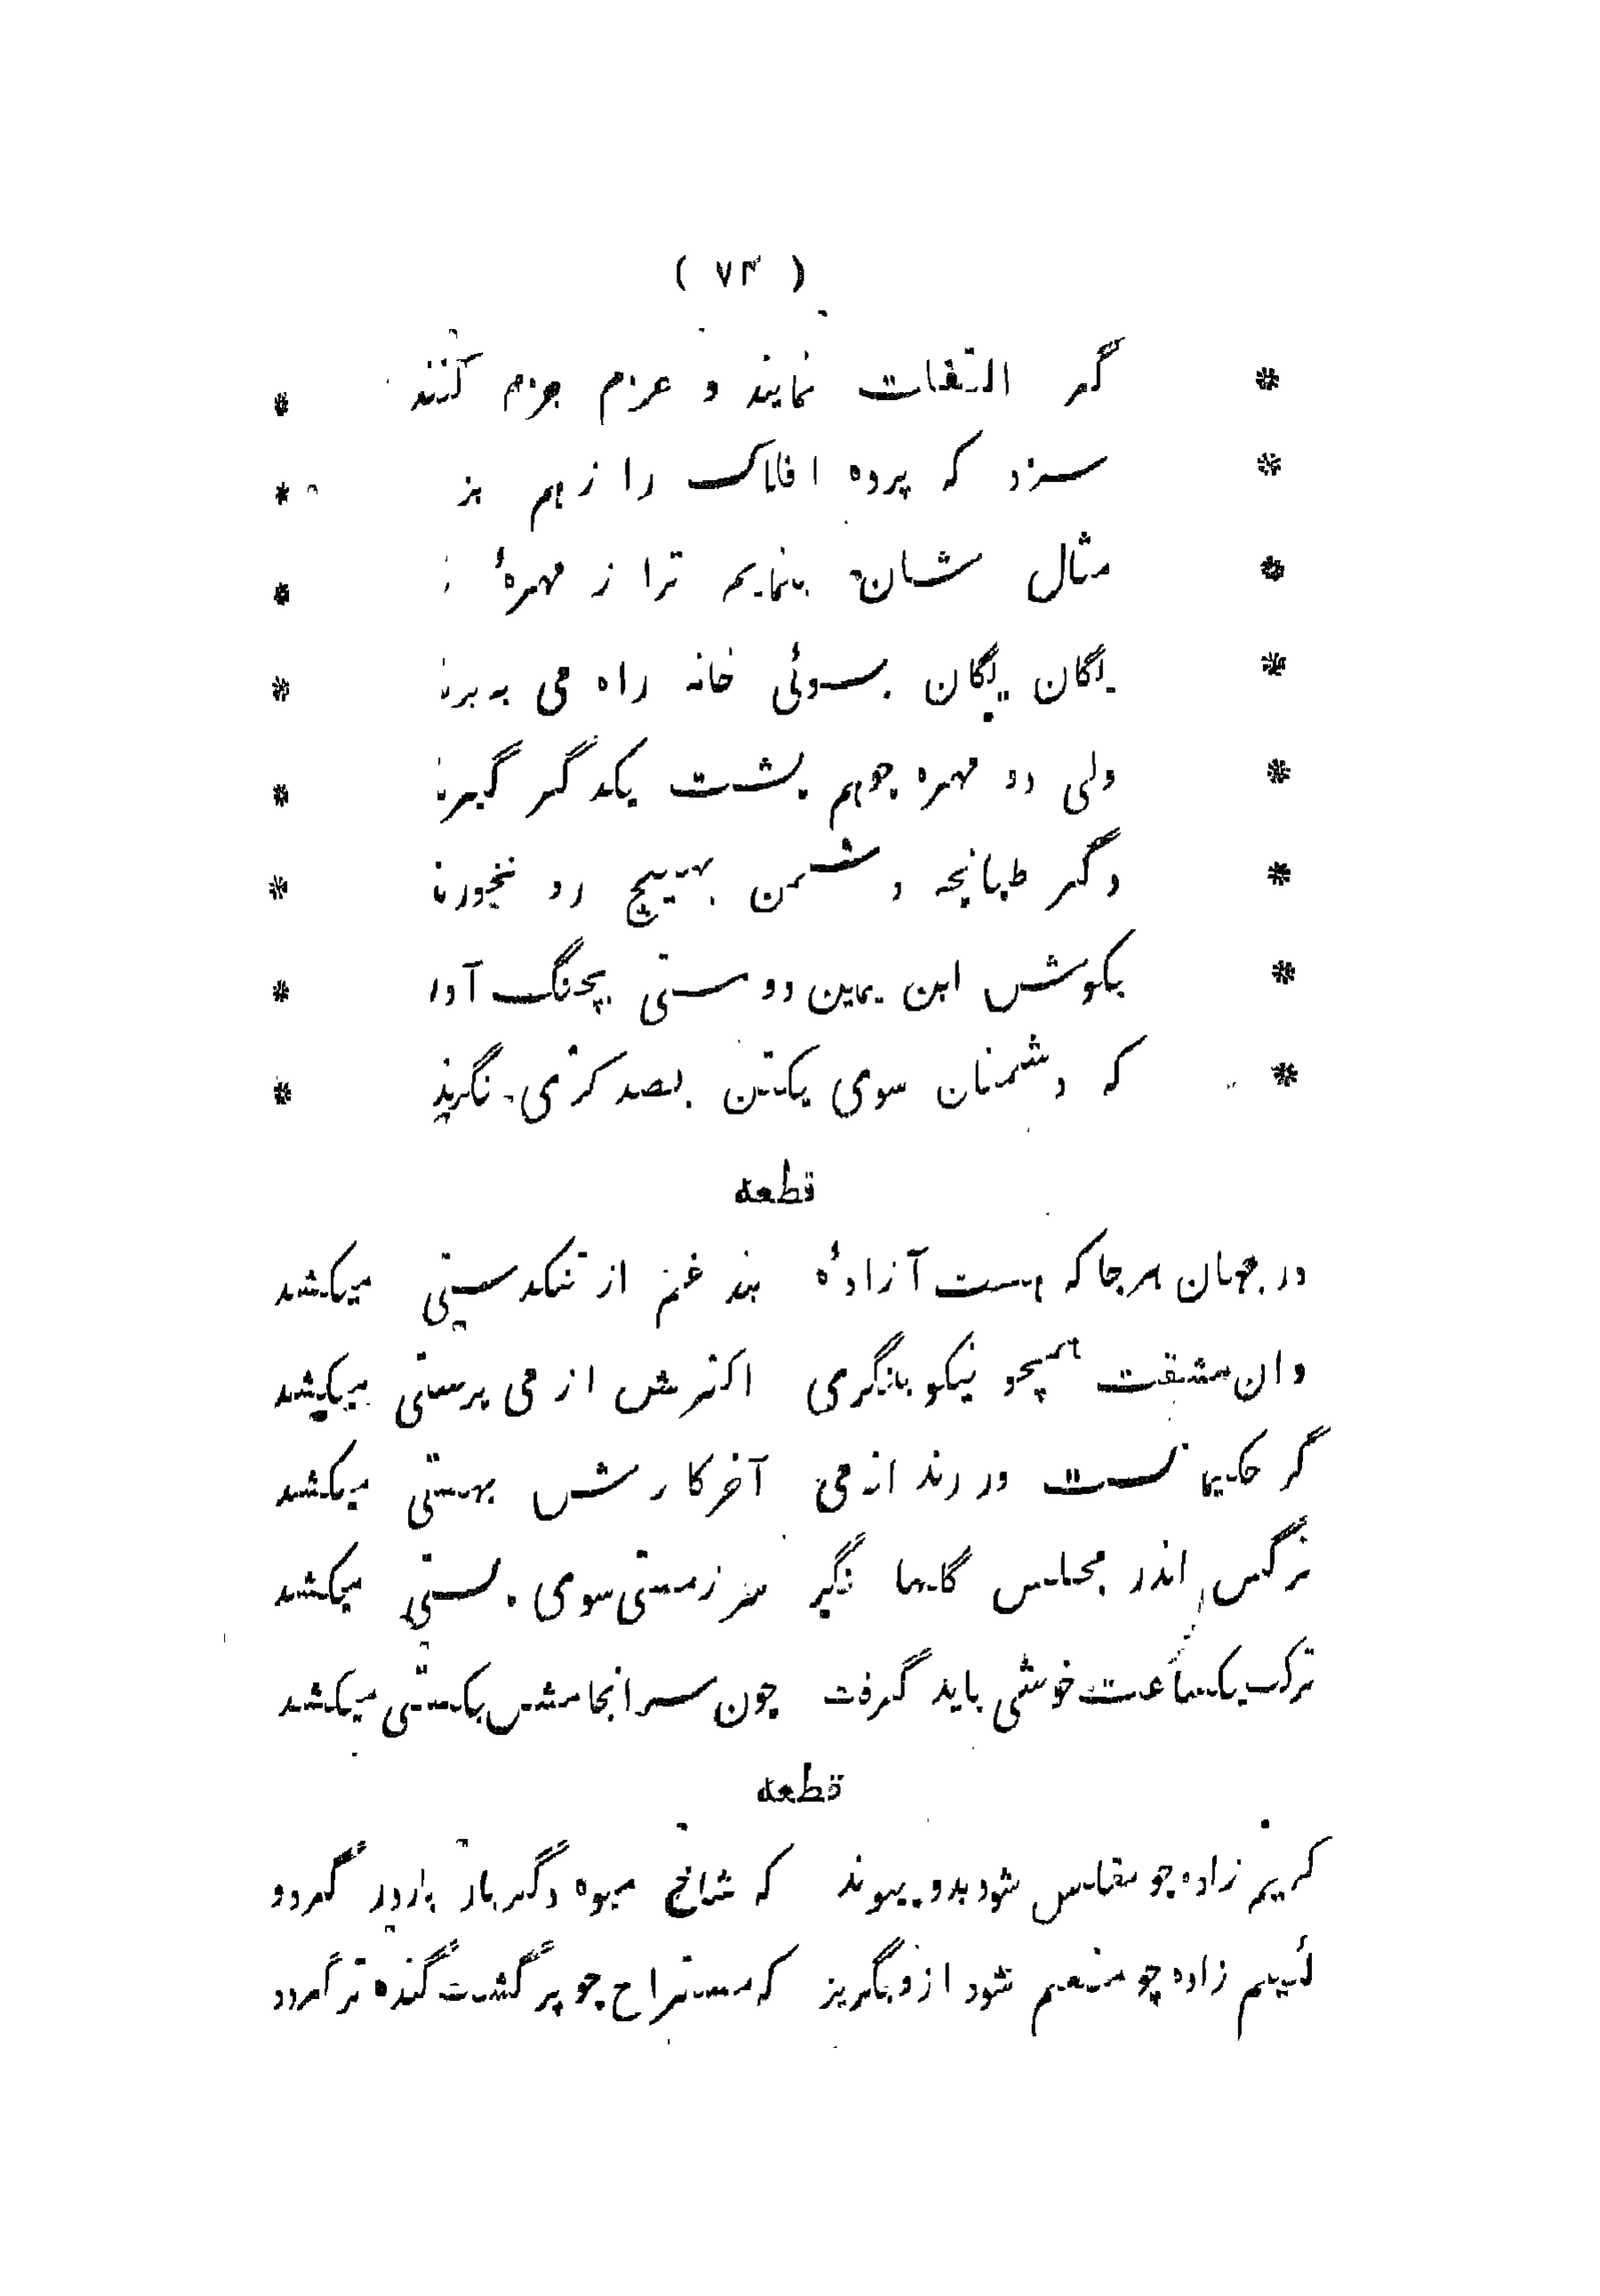 ( ۷۳ )
* گر التفات نمایند و عزم جزم کنند *
* سزد که پرده افلاک را ز هم *
* مثال شان بنمایم ترا ز مهرهٔ *
* یگان یگان بسوئی خانه راه می به برند *
* ولی دو مهره چو هم پشت یکدگر گیرند *
* دگر طپانچه دشمن بهییچ رو نخورند *
* بکوش ابن یمین دوستی بچنگ آور *
* که دشمنان سوی یکتن بصد کژی نگرند *
قطعه
در جهان هر جا که هست آزادهٔ بند غم از تنگدستی میکشد
وان مشقت همچو نیکو بنگری اکثرش از می پرستی میکشد
گر حکیما نست ور رند از می آخر کارش بهستی میکشد
نرگس اندر مجلس گلها نگر سر ز مستی سوی پستی میکشد
ترک یکساعت خوشی باید گرفت چون سرانجامش بکستی میکشد
قطعه
کریم زاده چو مفلس شود بدو پیوند که شاخ میوه دگر بار باردر گردد
لئیم زاده چو منعم شود ازو بگریز که مستراح چو پر گشت گنده تر گردد